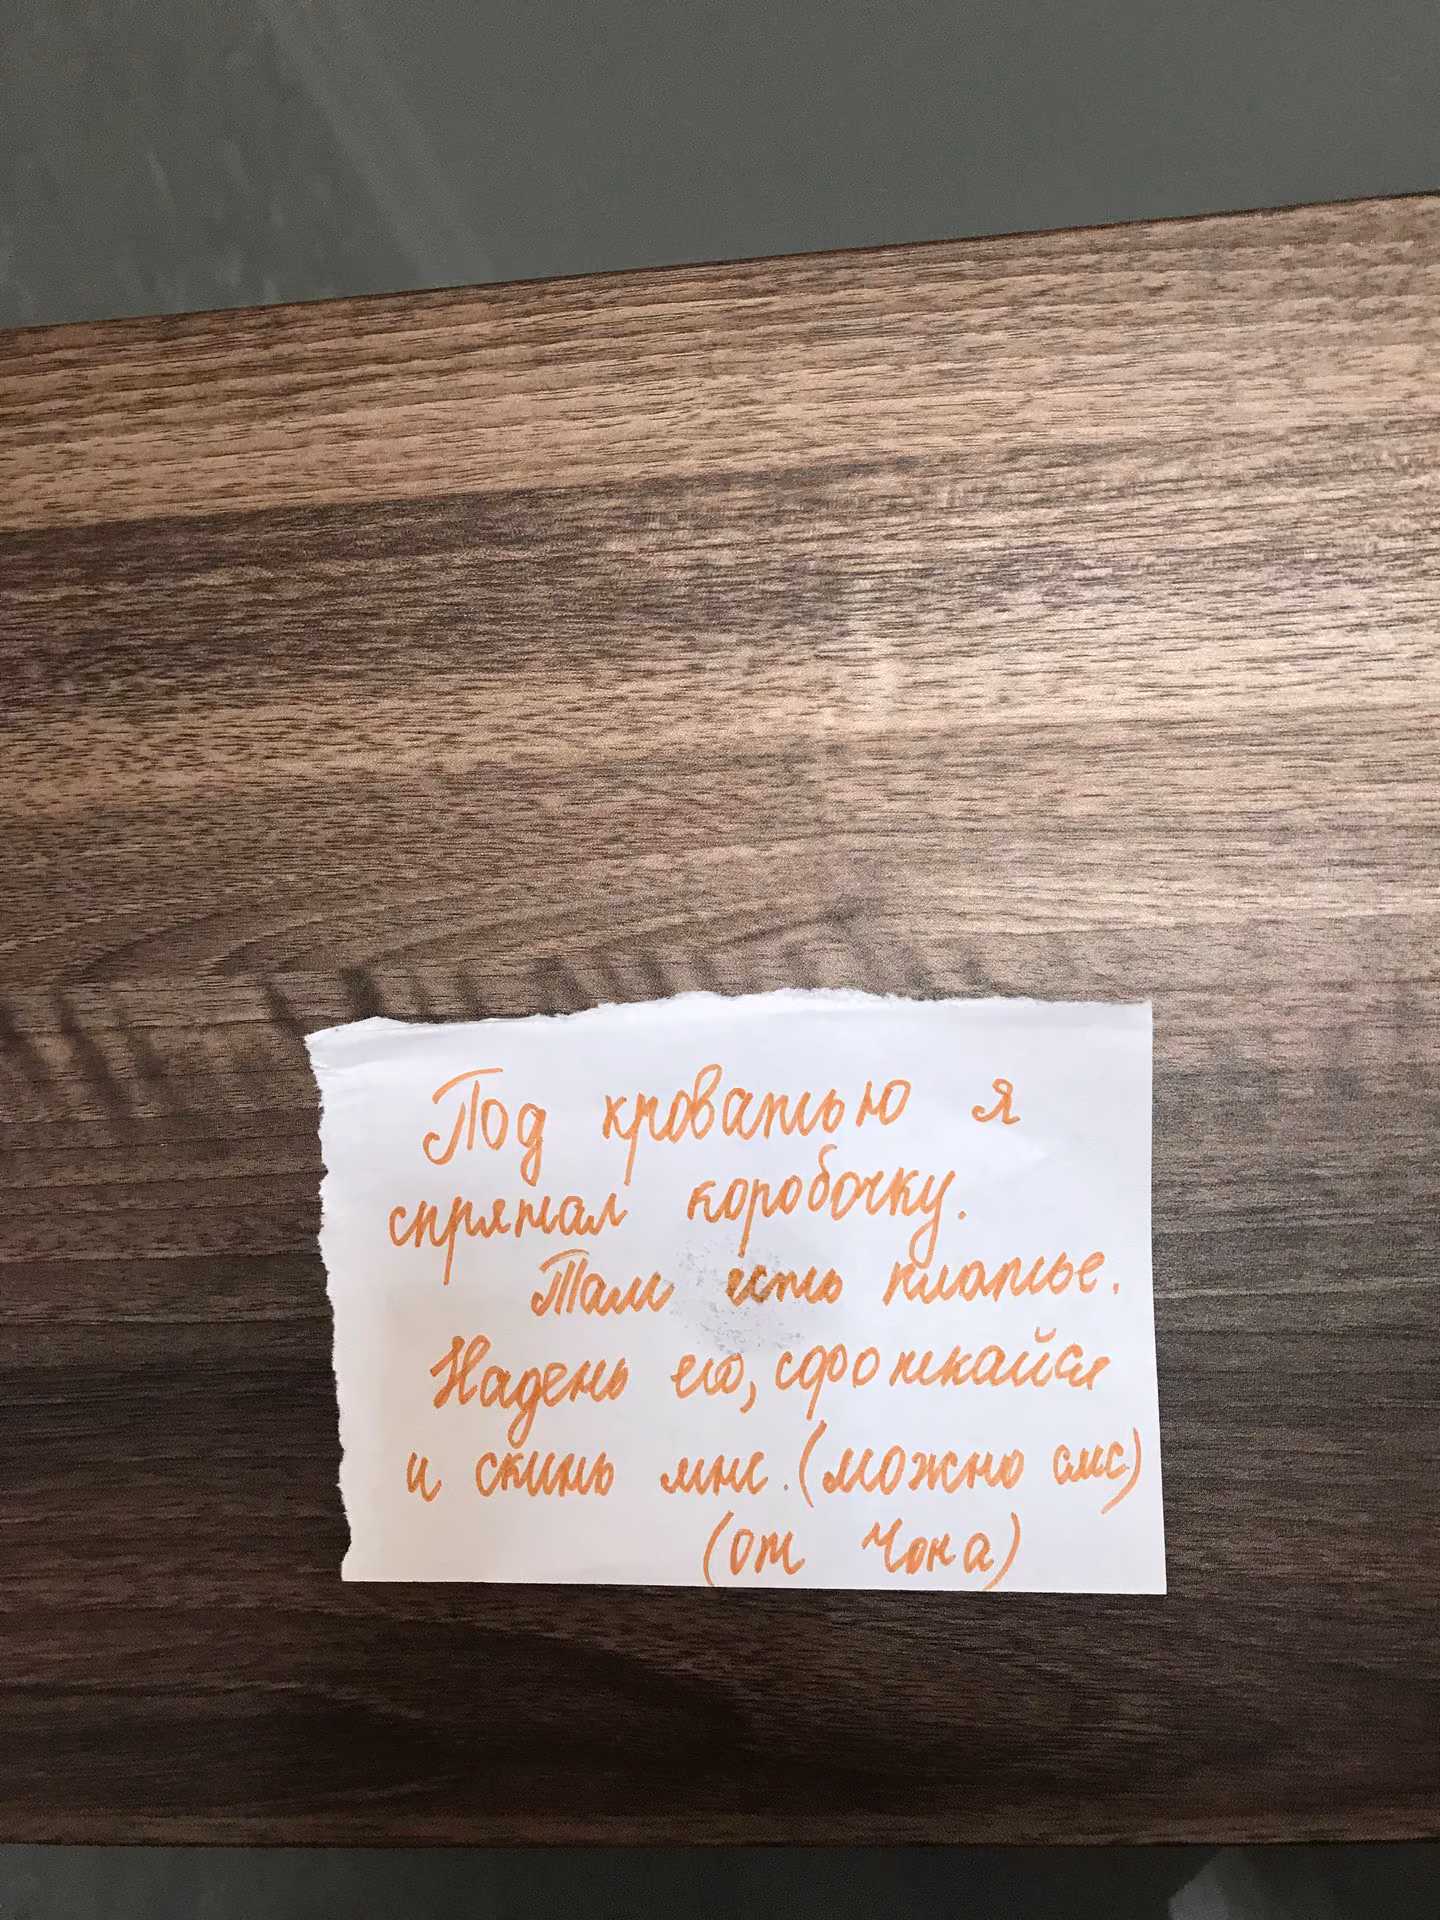 Под кроватью я
спрятал коробочку.
Там есть платье.
Надень его, сфоткайся
и скинь мне. (можно смс)
(от Чона)